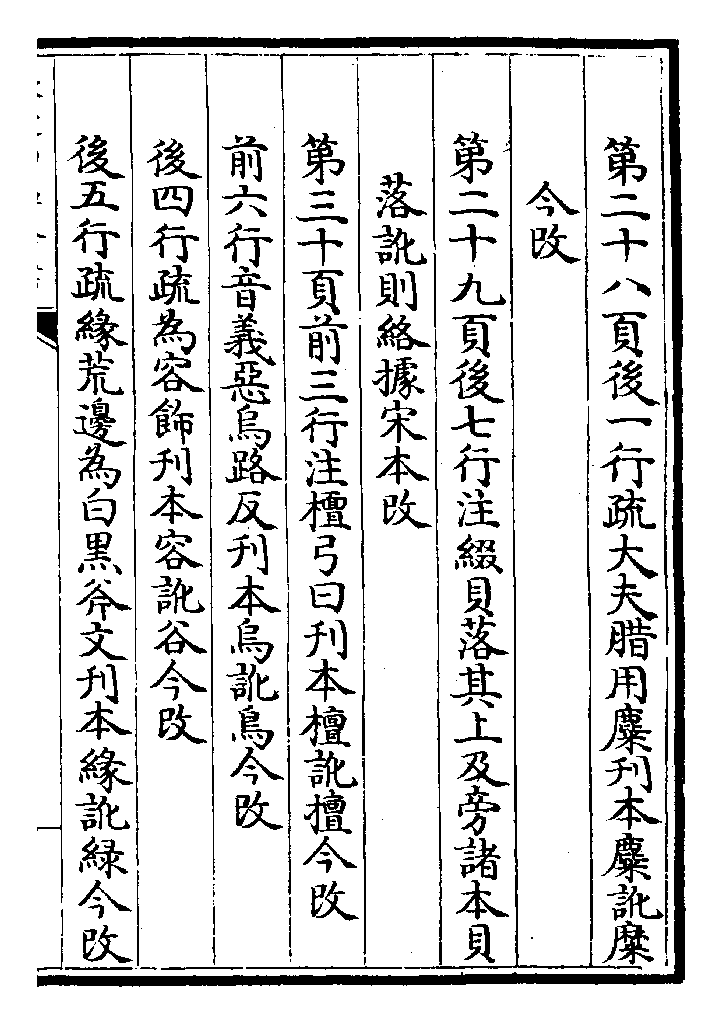 第二十八頁後一行疏大夫腊用麋刊本麋訛糜
今改
第二十九頁後七行注綴貝落其上及旁諸本貝
落訛則絡據宋本改
第三十頁前三行注檀弓曰刊本檀訛擅今改
前六行音義惡烏路反刊本烏訛鳥今改
後四行疏為容飾刊本容訛谷今改
後五行疏緣荒邊為白黑斧文刊本緣訛緑今改